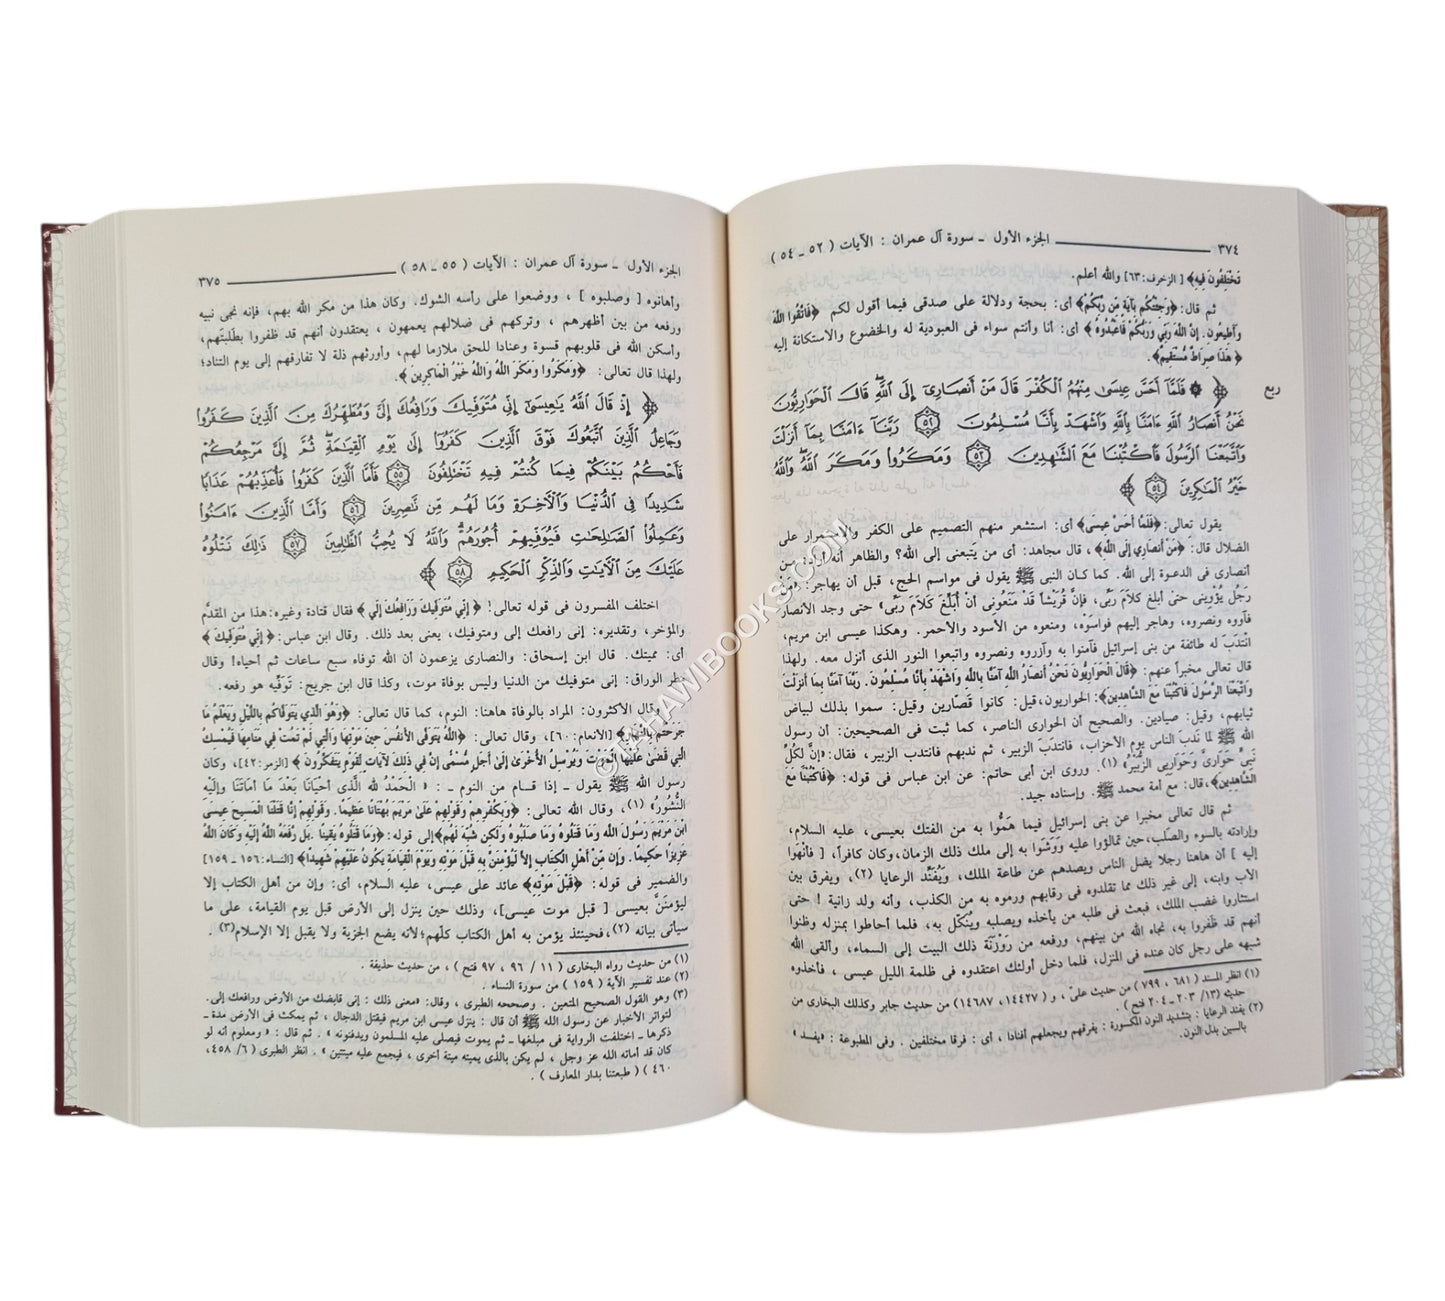 ٣٧٤ الجزء الأول - سورة آل عمران : الآيات ( ٥٢ - ٥٤ )
تَخْتَلِفُونَ فِيهِ﴾ [ الزخرف: ٦٣] والله أعلم.
ثم قال: ﴿وَجِئْتُكُم بِآيَةٍ مِّن رَّبِّكُمْ﴾ أى: بحجة ودلالة على صدقى فيما أقول لكم ﴿فَاتَّقُوا اللَّهَ
وَأَطِيعُونِ. إِنَّ اللَّهَ رَبِّي وَرَبُّكُمْ فَاعْبُدُوهُ﴾ أى: أنا وأنتم سواء فى العبودية له والخضوع والاستكانة إليه
﴿هَذَا صِرَاطٌ مُّسْتَقِيمٌ﴾.
ربع
﴿ ۞ فَلَمَّآ أَحَسَّ عِيسَىٰ مِنْهُمُ ٱلْكُفْرَ قَالَ مَنْ أَنصَارِىٓ إِلَى ٱللَّهِ ۖ قَالَ ٱلْحَوَارِيُّونَ
نَحْنُ أَنصَارُ ٱللَّهِ ءَامَنَّا بِٱللَّهِ وَٱشْهَدْ بِأَنَّا مُسْلِمُونَ ٥٢ رَبَّنَآ ءَامَنَّا بِمَآ أَنزَلْتَ
وَٱتَّبَعْنَا ٱلرَّسُولَ فَٱكْتُبْنَا مَعَ ٱلشَّٰهِدِينَ ٥٣ وَمَكَرُوا۟ وَمَكَرَ ٱللَّهُ ۖ وَٱللَّهُ
خَيْرُ ٱلْمَٰكِرِينَ ٥٤ ﴾
يقول تعالى: ﴿فَلَمَّا أَحَسَّ عِيسَى﴾ أى: استشعر منهم التصميم على الكفر والاستمرار على
الضلال قال: ﴿مَنْ أَنصَارِي إِلَى اللَّهِ﴾، قال مجاهد: أى من يَتبعنى إلى الله؟ والظاهر أنه أراد: من
أنصارى فى الدعوة إلى الله. كما كان النبى ﷺ يقول فى مواسم الحج، قبل أن يهاجر: «مَنْ
رَجُل يُؤْوِينى حتى أبلغ كلامَ رَبِّى، فإنَّ قُرَيْشاً قَدْ مَنَعُونى أنْ أُبَلِّغَ كَلامَ رَبِّى» حتى وجد الأنصار
فآووه ونصروه، وهاجر إليهم فواسَوْه، ومنعوه من الأسود والأحمر. وهكذا عيسى ابن مريم،
انْتدَبَ له طائفة من بنى إسرائيل فآمنوا به وآزروه ونصروه واتبعوا النور الذى أنزل معه. ولهذا
قال تعالى مخبراً عنهم: ﴿قَالَ الْحَوَارِيُّونَ نَحْنُ أَنصَارُ اللَّهِ آمَنَّا بِاللَّهِ وَاشْهَدْ بِأَنَّا مُسْلِمُونَ. رَبَّنَا آمَنَّا بِمَا أَنزَلْتَ
وَاتَّبَعْنَا الرَّسُولَ فَاكْتُبْنَا مَعَ الشَّاهِدِينَ﴾: الحواريون، قيل: كانوا قَصّارين وقيل: سموا بذلك لبياض
ثيابهم، وقيل: صيادين. والصحيح أن الحوارى الناصر، كما ثبت فى الصحيحين: أن رسول
الله ﷺ لما نَدبَ الناس يوم الأحزاب، فانتدَبَ الزبير، ثم ندبهم فانتدب الزبير، فقال: «إنَّ لِكُلِّ
نَبِىٍّ حَوَارِىّ وَحَوَارِيى الزُّبَيْرُ» (١). وروى ابن أبى حاتم: عن ابن عباس فى قوله: ﴿فَاكْتُبْنَا مَعَ
الشَّاهِدِينَ﴾، قال: مع أمة محمد ﷺ. وإسناده جيد.
ثم قال تعالى مخبرا عن بنى إسرائيل فيما همُّوا به من الفتك بعيسى، عليه السلام،
وإرادته بالسوء والصَّلب، حين تمالؤوا عليه وَوَشَوا به إلى ملك ذلك الزمان، وكان كافراً، [ فأنْهَوا
إليه ] أن هاهنا رجلا يضل الناس ويصدهم عن طاعة الملك، ويُفَنِّد الرعايا (٢)، ويفرق بين
الأب وابنه، إلى غير ذلك مما تقلدوه فى رقابهم ورموه به من الكذب، وأنه ولد زانية ! حتى
استثاروا غضب الملك، فبعث فى طلبه من يأخذه ويصلبه ويُنَكِّل به، فلما أحاطوا بمنزله وظنوا
أنهم قد ظَفروا به، نجاه الله من بينهم، ورفعه من رَوْزَنَة ذلك البيت إلى السماء، وألقى الله
شبهه على رجل كان عنده فى المنزل، فلما دخل أولئك اعتقدوه فى ظلمة الليل عيسى ، فأخذوه
(١) انظر المسند ( ٦٨١ ، ٧٩٩ ) من حديث علىّ ، و ( ١٤٤٢٧ ، ١٤٦٨٧ ) من حديث جابر وكذلك البخارى من
حديثه ( ١٣/ ٢٠٣ - ٢٠٤ فتح ) .
(٢) يفند الرعايا : بتشديد النون المكسورة : يفرقهم ويجعلهم أفنادا ، أى : فرقا مختلفين . وفى المطبوعة : « يفسد »
بالسين بدل النون.
الجزء الأول - سورة آل عمران : الآيات ( ٥٥ - ٥٨ ) ٣٧٥
وأهانوه [ وصلبوه ] ، ووضعوا على رأسه الشوك. وكان هذا من مكر الله بهم، فإنه نجى نبيه
ورفعه من بين أظهرهم ، وتركهم فى ضلالهم يعمهون ، يعتقدون أنهم قد ظفروا بطَلبتَهم،
وأسكن الله فى قلوبهم قسوة وعنادا للحق ملازما لهم، وأورثهم ذلة لا تفارقهم إلى يوم التناد؛
ولهذا قال تعالى: ﴿وَمَكَرُوا وَمَكَرَ اللَّهُ وَاللَّهُ خَيْرُ الْمَاكِرِينَ ﴾.
﴿ إِذْ قَالَ ٱللَّهُ يَٰعِيسَىٰٓ إِنِّى مُتَوَفِّيكَ وَرَافِعُكَ إِلَىَّ وَمُطَهِّرُكَ مِنَ ٱلَّذِينَ كَفَرُوا۟
وَجَاعِلُ ٱلَّذِينَ ٱتَّبَعُوكَ فَوْقَ ٱلَّذِينَ كَفَرُوٓا۟ إِلَىٰ يَوْمِ ٱلْقِيَٰمَةِ ۖ ثُمَّ إِلَىَّ مَرْجِعُكُمْ
فَأَحْكُمُ بَيْنَكُمْ فِيمَا كُنتُمْ فِيهِ تَخْتَلِفُونَ ٥٥ فَأَمَّا ٱلَّذِينَ كَفَرُوا۟ فَأُعَذِّبُهُمْ عَذَابًا
شَدِيدًا فِى ٱلدُّنْيَا وَٱلْءَاخِرَةِ وَمَا لَهُم مِّن نَّٰصِرِينَ ٥٦ وَأَمَّا ٱلَّذِينَ ءَامَنُوا۟
وَعَمِلُوا۟ ٱلصَّٰلِحَٰتِ فَيُوَفِّيهِمْ أُجُورَهُمْ ۗ وَٱللَّهُ لَا يُحِبُّ ٱلظَّٰلِمِينَ ٥٧ ذَٰلِكَ نَتْلُوهُ
عَلَيْكَ مِنَ ٱلْءَايَٰتِ وَٱلذِّكْرِ ٱلْحَكِيمِ ٥٨ ﴾
اختلف المفسرون فى قوله تعالى! ﴿ إِنِّي مُتَوَفِّيكَ وَرَافِعُكَ إِلَيَّ ﴾ فقال قتادة وغيره: هذا من المقدَّم
والمؤخر، وتقديره: إنى رافعك إلى ومتوفيك، يعنى بعد ذلك. وقال ابن عباس: ﴿ إِنِّي مُتَوَفِّيكَ ﴾
أى: مميتك. قال ابن إسحاق: والنصارى يزعمون أن الله توفاه سبع ساعات ثم أحياه! وقال
مطر الوراق: إنى متوفيك من الدنيا وليس بوفاة موت، وكذا قال ابن جريج: تَوَفِّيه هو رفعه.
وقال الأكثرون: المراد بالوفاة هاهنا: النوم، كما قال تعالى: ﴿وَهُوَ الَّذِي يَتَوَفَّاكُم بِاللَّيْلِ وَيَعْلَمُ مَا
جَرَحْتُم بِالنَّهَارِ﴾ [الأنعام: ٦٠]، وقال تعالى: ﴿اللَّهُ يَتَوَفَّى الأَنفُسَ حِينَ مَوْتِهَا وَالَّتِي لَمْ تَمُتْ فِي مَنَامِهَا فَيُمْسِكُ
الَّتِي قَضَىٰ عَلَيْهَا الْمَوْتَ وَيُرْسِلُ الأُخْرَىٰ إِلَىٰ أَجَلٍ مُّسَمًّى إِنَّ فِي ذَلِكَ لآيَاتٍ لِّقَوْمٍ يَتَفَكَّرُونَ ﴾ [الزمر: ٤٢]، وكان
رسول الله ﷺ يقول - إذا قام من النوم - : « الْحَمْدُ لله الَّذى أحْيَانَا بَعْدَ مَا أمَاتَنَا وإلَيْه
النُّشُورُ» (١)، وقال الله تعالى: ﴿وَبِكُفْرِهِمْ وَقَوْلِهِمْ عَلَىٰ مَرْيَمَ بُهْتَانًا عَظِيمًا. وَقَوْلِهِمْ إِنَّا قَتَلْنَا الْمَسِيحَ عِيسَى
ابْنَ مَرْيَمَ رَسُولَ اللَّهِ وَمَا قَتَلُوهُ وَمَا صَلَبُوهُ وَلَكِن شُبِّهَ لَهُمْ﴾ إلى قوله: ﴿وَمَا قَتَلُوهُ يَقِينًا. بَل رَّفَعَهُ اللَّهُ إِلَيْهِ وَكَانَ اللَّهُ
عَزِيزًا حَكِيمًا. وَإِن مِّنْ أَهْلِ الْكِتَابِ إِلاَّ لَيُؤْمِنَنَّ بِهِ قَبْلَ مَوْتِهِ وَيَوْمَ الْقِيَامَةِ يَكُونُ عَلَيْهِمْ شَهِيدًا﴾ [النساء: ١٥٦ - ١٥٩]
والضمير فى قوله: ﴿قَبْلَ مَوْتِهِ﴾ عائد على عيسى، عليه السلام، أى: وإن من أهل الكتاب إلا
ليؤمنَنَّ بعيسى [ قبل موت عيسى]، وذلك حين ينزل إلى الأرض قبل يوم القيامة، على ما
سيأتى بيانه (٢)، فحينئذ يؤمن به أهل الكتاب كلّهم؛ لأنه يضع الجزية ولا يقبل إلا الإسلام(٣) .
(١) من حديث رواه البخارى ( ١١ / ٩٦ ، ٩٧ فتح ) ، من حديث حذيفة .
(٢) عند تفسير الآية ( ١٥٩ ) من سورة النساء .
(٣) وهو القول الصحيح المتعين . وصححه الطبرى ، وقال: «معنى ذلك : إنى قابضك من الأرض ورافعك إلى.
لتواتر الأخبار عن رسول الله ﷺ أن قال : ينزل عيسى ابن مريم فيقتل الدجال ، ثم يمكث فى الأرض مدة -
ذكرها - اختلفت الرواية فى مبلغها - ثم يموت فيصلى عليه المسلمون ويدفنونه » . ثم قال : « ومعلوم أنه لو
كان قد أماته الله عز وجل ، لم يكن بالذى يميته ميتة أخرى ، فيجمع عليه ميتتين » . انظر الطبرى ( ٦ / ٤٥٨،
٤٦٠ ) ( طبعتنا بدار المعارف ) .
© TAHAWIBOOKS.COM